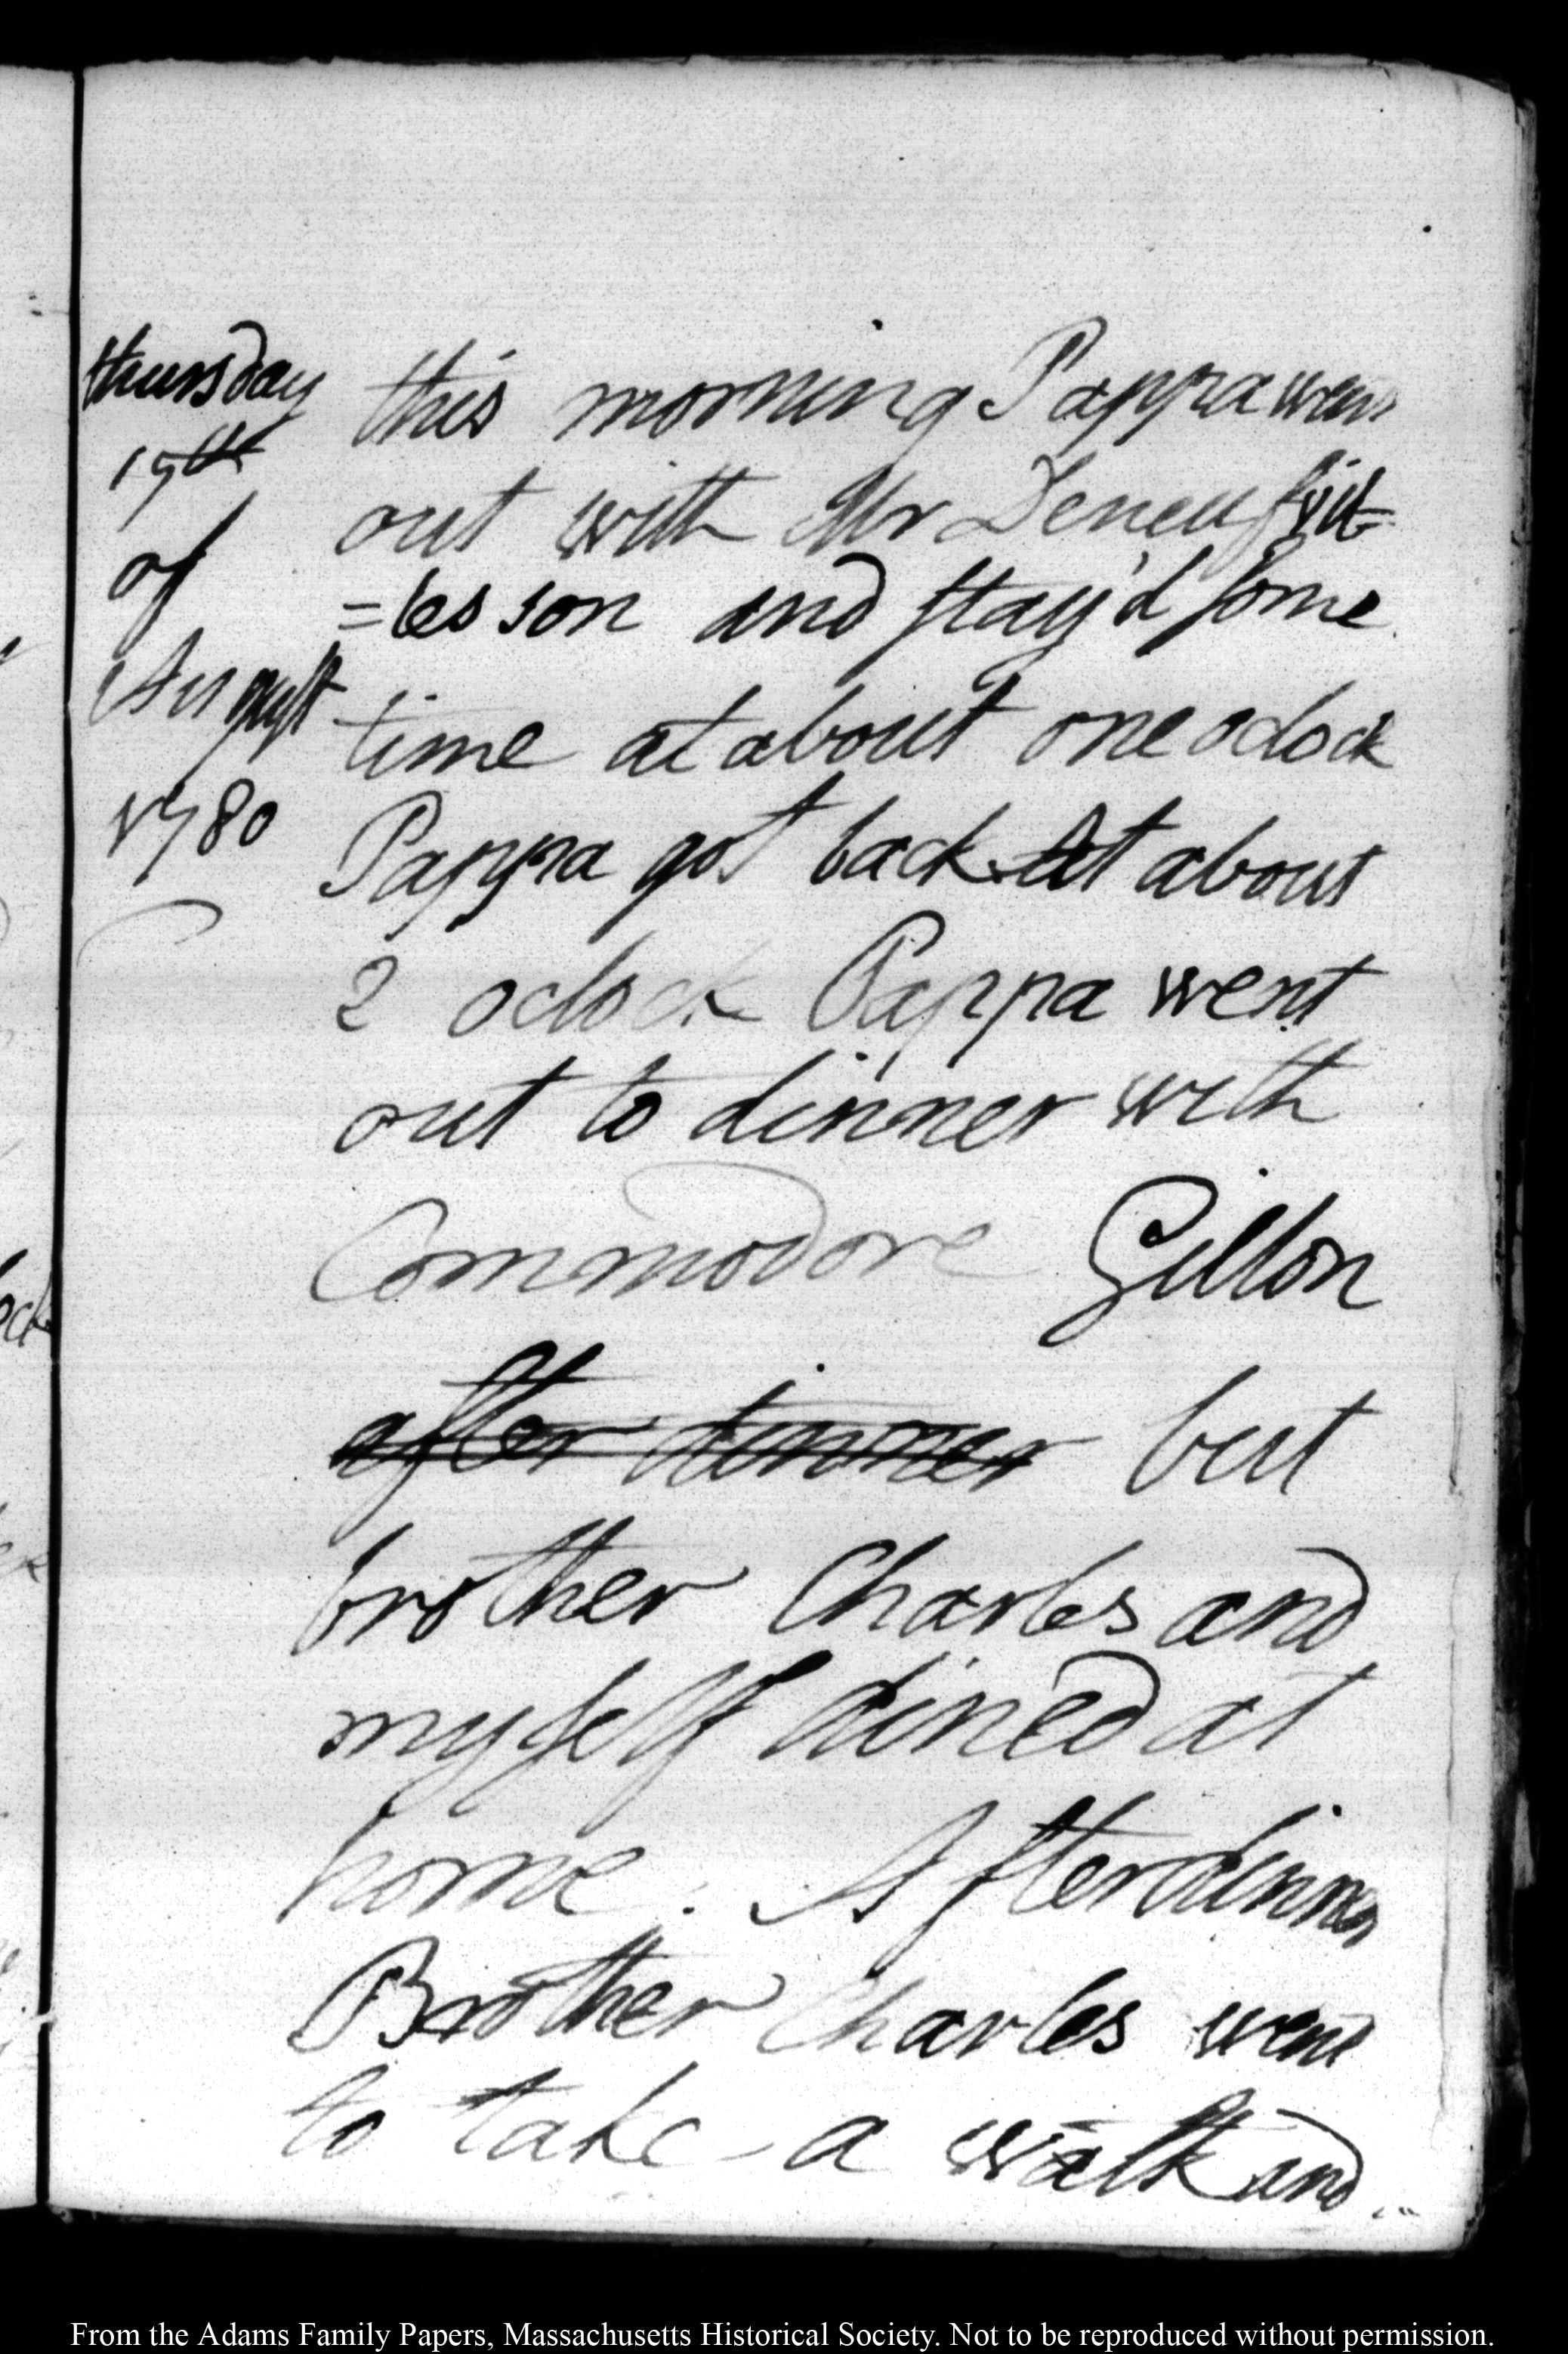 thursday
17th
of
August
1780
this morning Pappa went
out with Mr Deneufvil=
=les son and stay'd some
time at about one oclock
Pappa got back At about
2 oclock Pappa went
out to dinner with
Commodore Gillon
after dinner but
brother Charles and
myself dined at
home. After dinner
Brother Charles went
to take a walk and
From the Adams Family Papers, Massachusetts Historical Society. Not to be reproduced without permission.